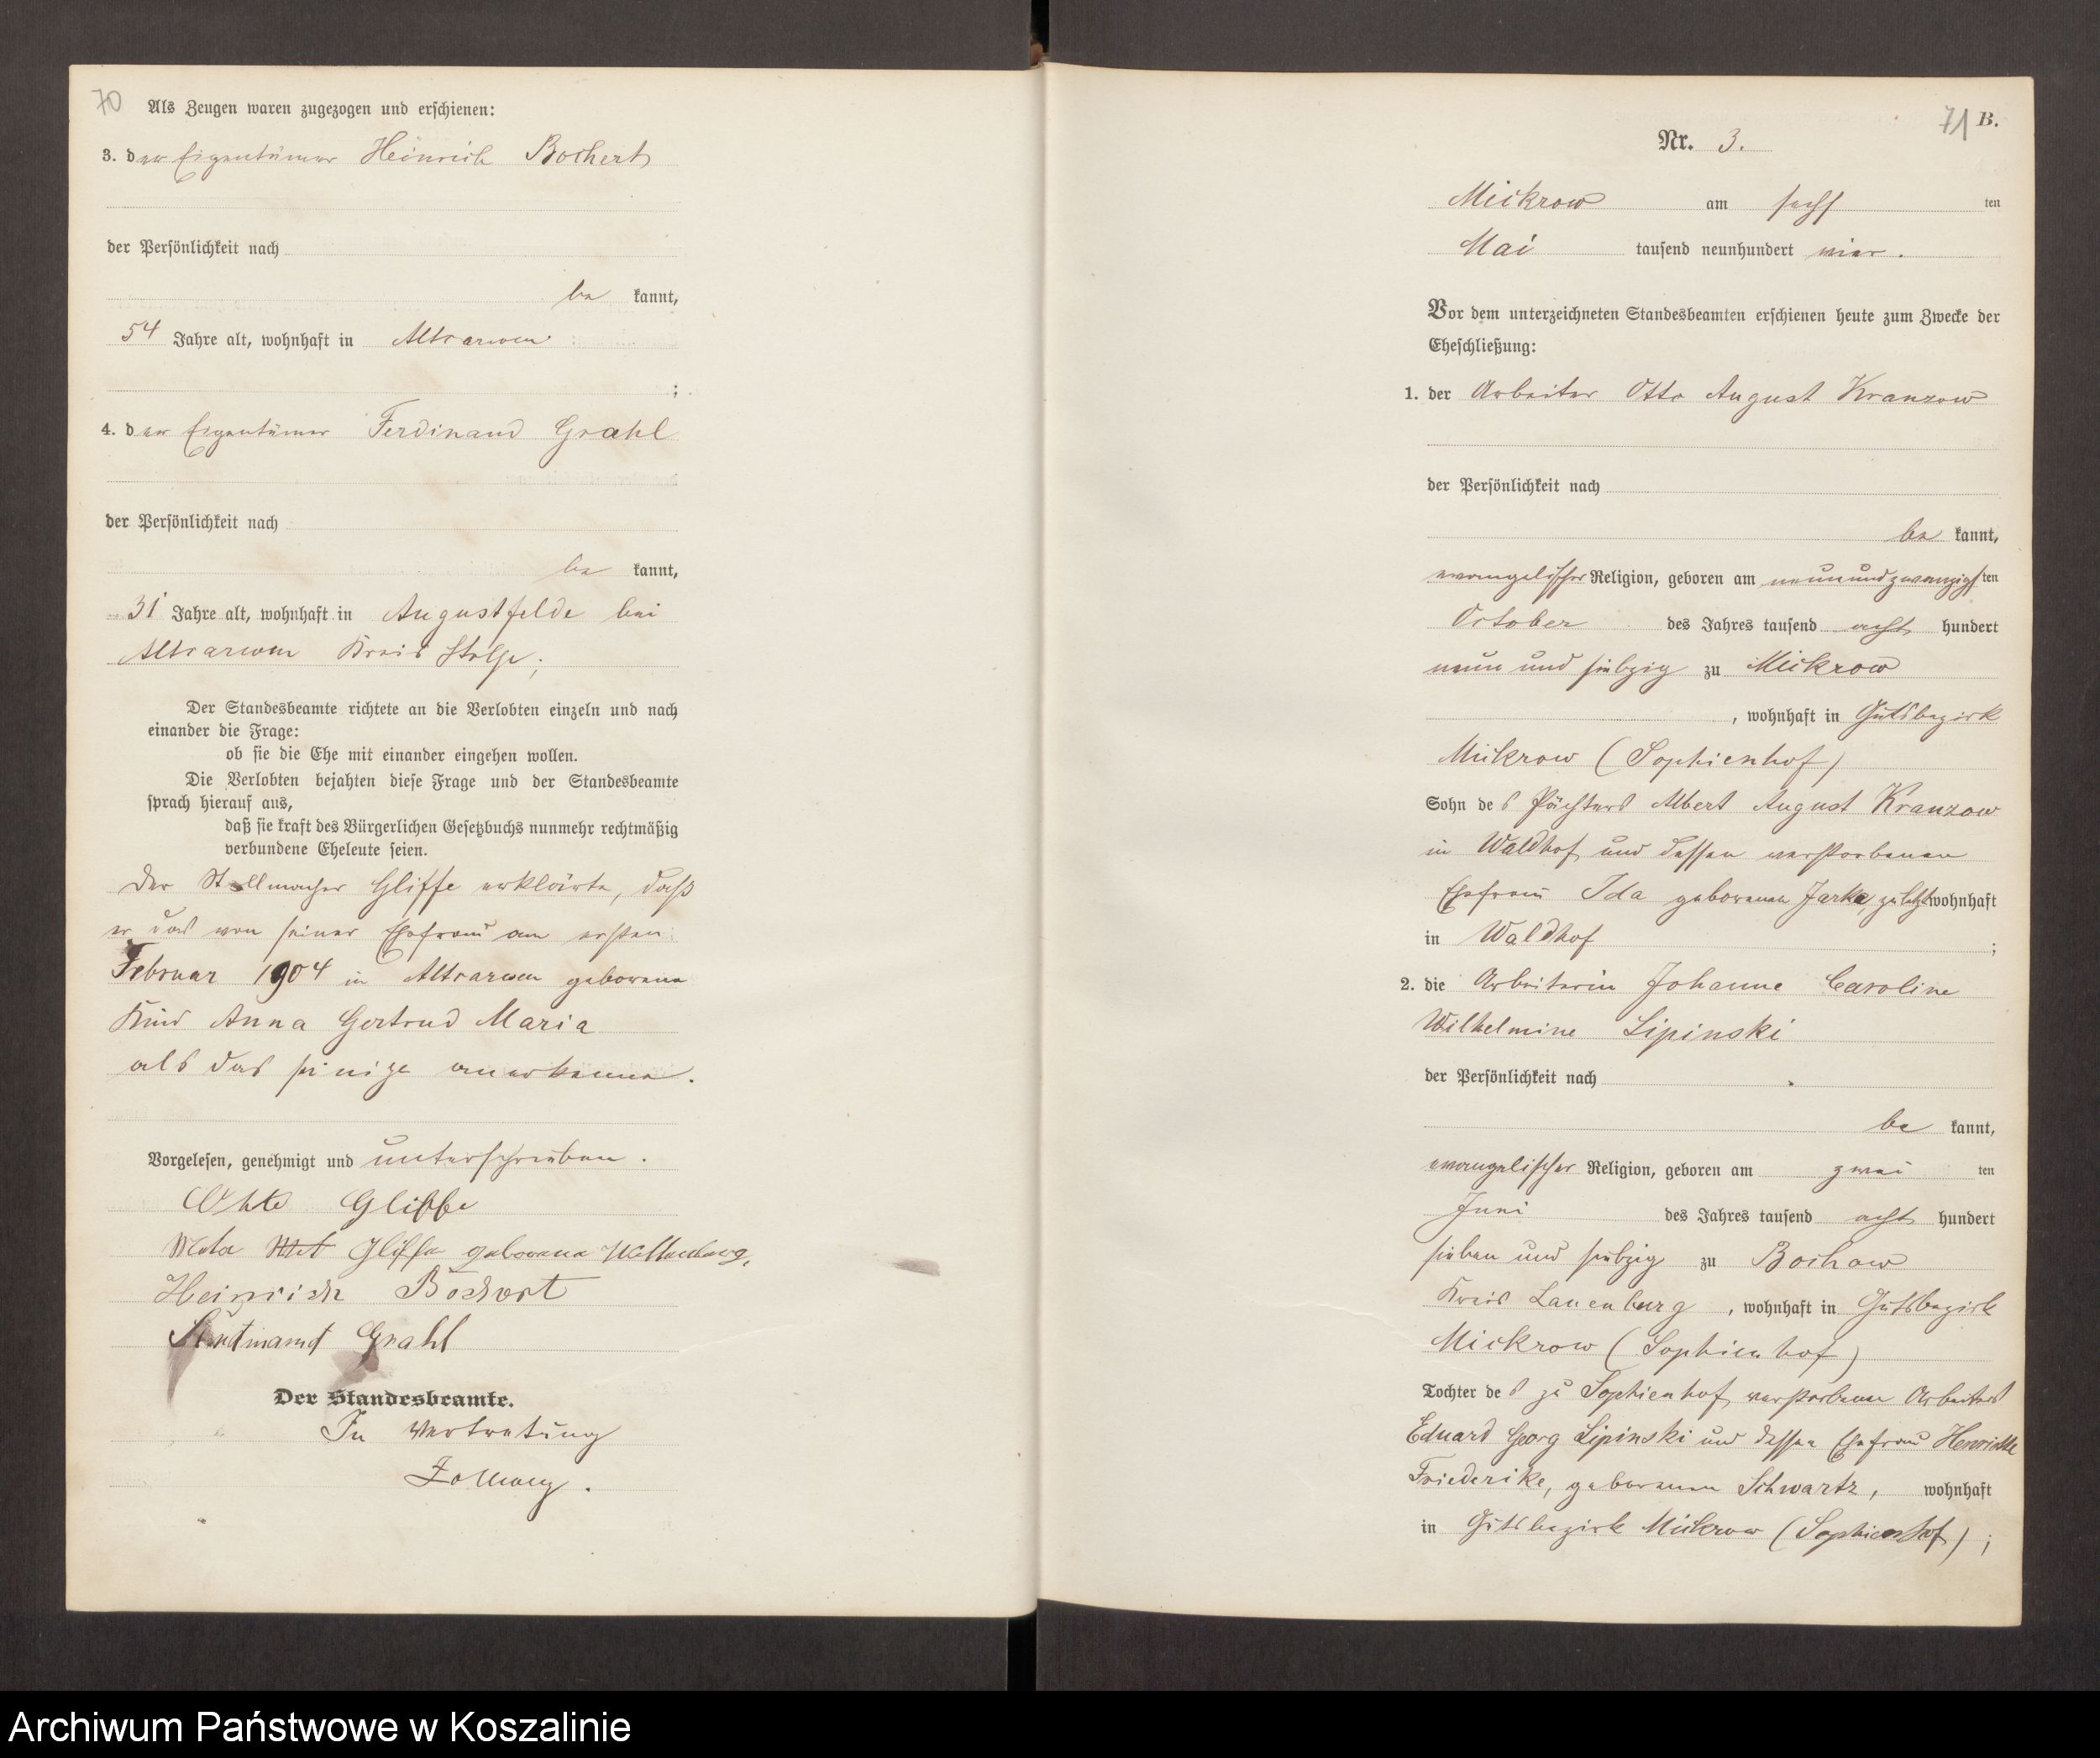 70
Als Zeugen waren zugezogen und erschienen:
3. der Eigentümer Heinrich Bochert
der Persönlichkeit nach
be kannt,
54 Jahre alt, wohnhaft in Altrarwen
;
4. der Eigentümer Ferdinand Grahl
der Persönlichkeit nach
be kannt,
31 Jahre alt, wohnhaft in Augustfelde bei
Altrarwen Kreis Stolp;
Der Standesbeamte richtete an die Verlobten einzeln und nach
einander die Frage:
ob sie die Ehe mit einander eingehen wollen.
Die Verlobten bejahten diese Frage und der Standesbeamte
sprach hierauf aus,
daß sie kraft des Bürgerlichen Gesetzbuchs nunmehr rechtmäßig
verbundene Eheleute seien.
Der Stellmacher Gliffe erklärte, daß
er das von seiner Ehefrau am ersten
Februar 1904 in Altrarwen geborene
Kind Anna Gertrud Maria
als das seinige anerkenne.
Vorgelesen, genehmigt und unterschrieben.
Otto Gliffe
Gliffe geborene
Heinrich Bochert
Ferdinand Grahl
Der Standesbeamte.
In Vertretung
71 B.
Nr. 3.
Mickrow am sechs ten
Mai tausend neunhundert vier.
Vor dem unterzeichneten Standesbeamten erschienen heute zum Zwecke der
Eheschließung:
1. der Arbeiter Otto August Kranzow
der Persönlichkeit nach
be kannt,
evangelischer Religion, geboren am neunundzwanzigs ten
October des Jahres tausend acht hundert
neun und siebzig zu Mickrow
, wohnhaft in Gutsbezirk
Mickrow (Sophienhof)
Sohn des Pächters Albert August Kranzow
in Waldhof und dessen verstorbenen
Ehefrau Ida geborenen Jarke, zuletzt wohnhaft
in Waldhof ;
2. die Arbeiterin Johanne Caroline
Wilhelmine Lipinski
der Persönlichkeit nach
be kannt,
evangelischer Religion, geboren am zwei ten
Juni des Jahres tausend acht hundert
sieben und siebzig zu Bochow
Kreis Lauenburg , wohnhaft in Gutsbezirk
Mickrow (Sophienhof)
Tochter des zu Sophienhof verstorbenen Arbeiters
Eduard Georg Lipinski und dessen Ehefrau Henriette
Friederike, geborenen Schwartz, wohnhaft
in Gutsbezirk Mickrow (Sophienhof) ;
Archiwum Państwowe w Koszalinie